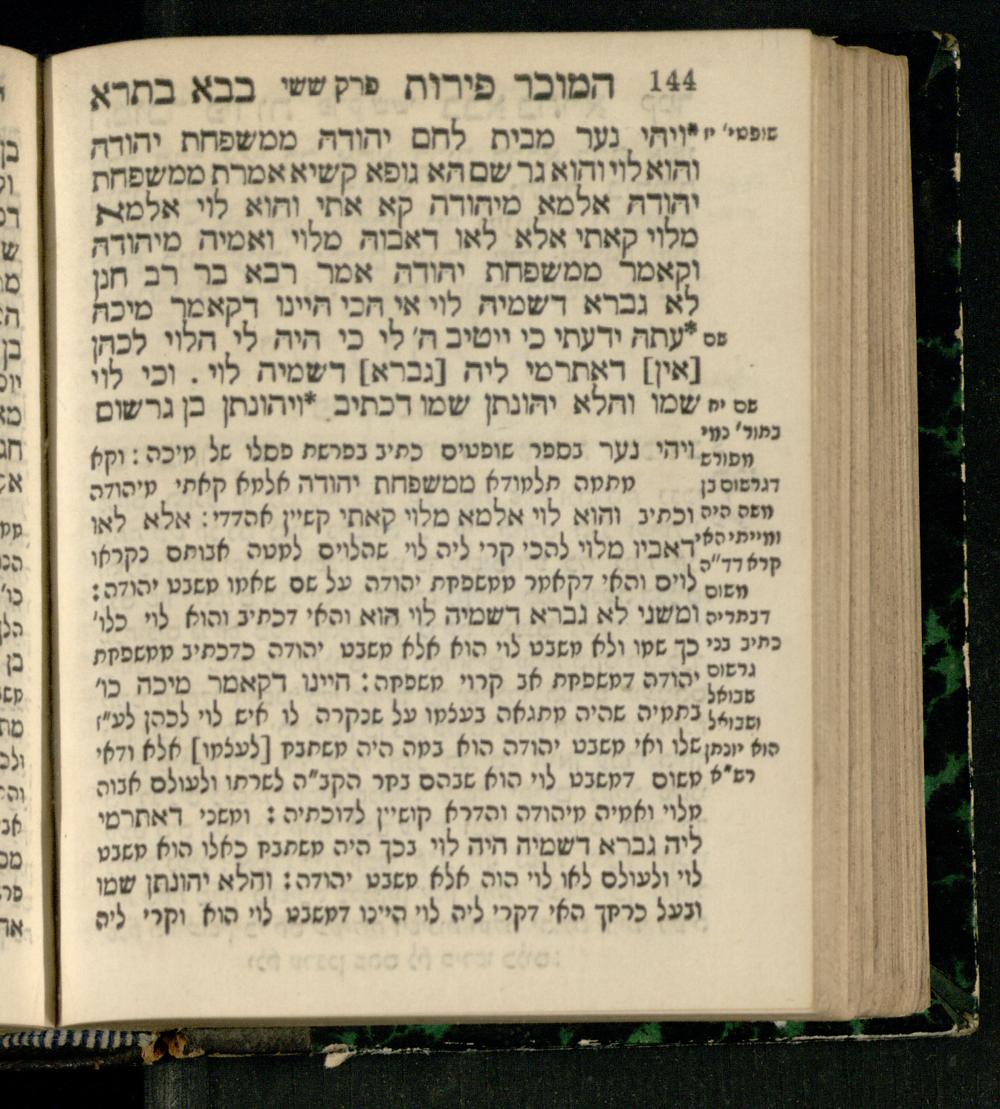 144 המוכר פירות פרק ששי בבא בתרא
שופטי׳ יז *ויהי נער מבית לחם יהודה ממשפחת יהודה
והוא לוי והוא גר שם הא גופא קשיא אמרת ממשפחת
יהודה אלמא מיהודה קא אתי והוא לוי אלמא
מלוי קאתי אלא לאו דאבוה מלוי ואמיה מיהודה
וקאמר ממשפחת יהודה אמר רבא בר רב חנן
לא גברא דשמיה לוי אי הכי היינו דקאמר מיכה
שם *עתה ידעתי כי ייטיב ה׳ לי כי היה לי הלוי לכהן
[אין] דאתרמי ליה [גברא] דשמיה לוי . וכי לוי
שם יח שמו והלא יהונתן שמו דכתיב *ויהונתן בן גרשום
ויהי נער בספר שופטים כתיב בפרשת פסלו של מיכה : וקא
מתמה תלמודא ממשפחת יהודה אלמא קאתי מיהודה
וכתיב והוא לוי אלמא מלוי קאתי קשיין אהדדי : אלא לאו
דאביו מלוי להכי קרי ליה לוי שהלוים למטה אבותם נקראו
לוים והאי דקאמר ממשפחת יהודה על שם שאמו משבט יהודה :
ומשני לא גברא דשמיה לוי הוא והאי דכתיב והוא לוי כלו׳
כך שמו ולא משבט לוי הוא אלא משבט יהודה כדכתיב ממשפחת
יהודה דמשפחת אב קרוי משפחה : היינו דקאמר מיכה כו׳
בתמיה שהיה מתגאה בעצמו על שנקרה לו איש לוי לכהן לע״ז
שלו ואי משבט יהודה הוא במה היה משתבח [לעצמו] אלא ודאי
משום דמשבט לוי הוא שבהם בחר הקב״ה לשרתו ולעולם אבוה
מלוי ואמיה מיהודה והדרא קושיין לדוכתיה : ומשני דאתרמי
ליה גברא דשמיה היה לוי בכך היה משתבח כאלו הוא משבט
לוי ולעולם לאו לוי הוה אלא משבט יהודה : והלא יהונתן שמו
ובעל כרחך האי דקרי ליה לוי היינו דמשבט לוי הוא וקרי ליה
בתור׳ כמי
מפורש
דגרשום בן
משה היה
ומייתי האי
קרא דד״ה
משום
דבתריה
כתיב בני
גרשום
שבואל
ושבואל
הוא יונתן
רש״א